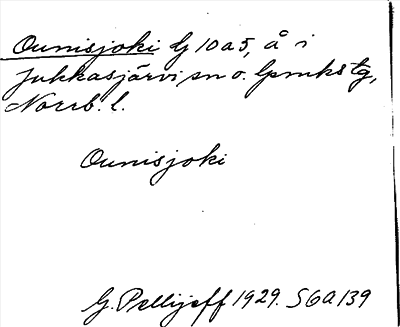 Ounisjoki G 10 a 5, å i
Jukkasjärvi sn o. lpmks tg,
Norrb. l.
Ounisjoki
G. Pellijeff 1929. S 6 a 139